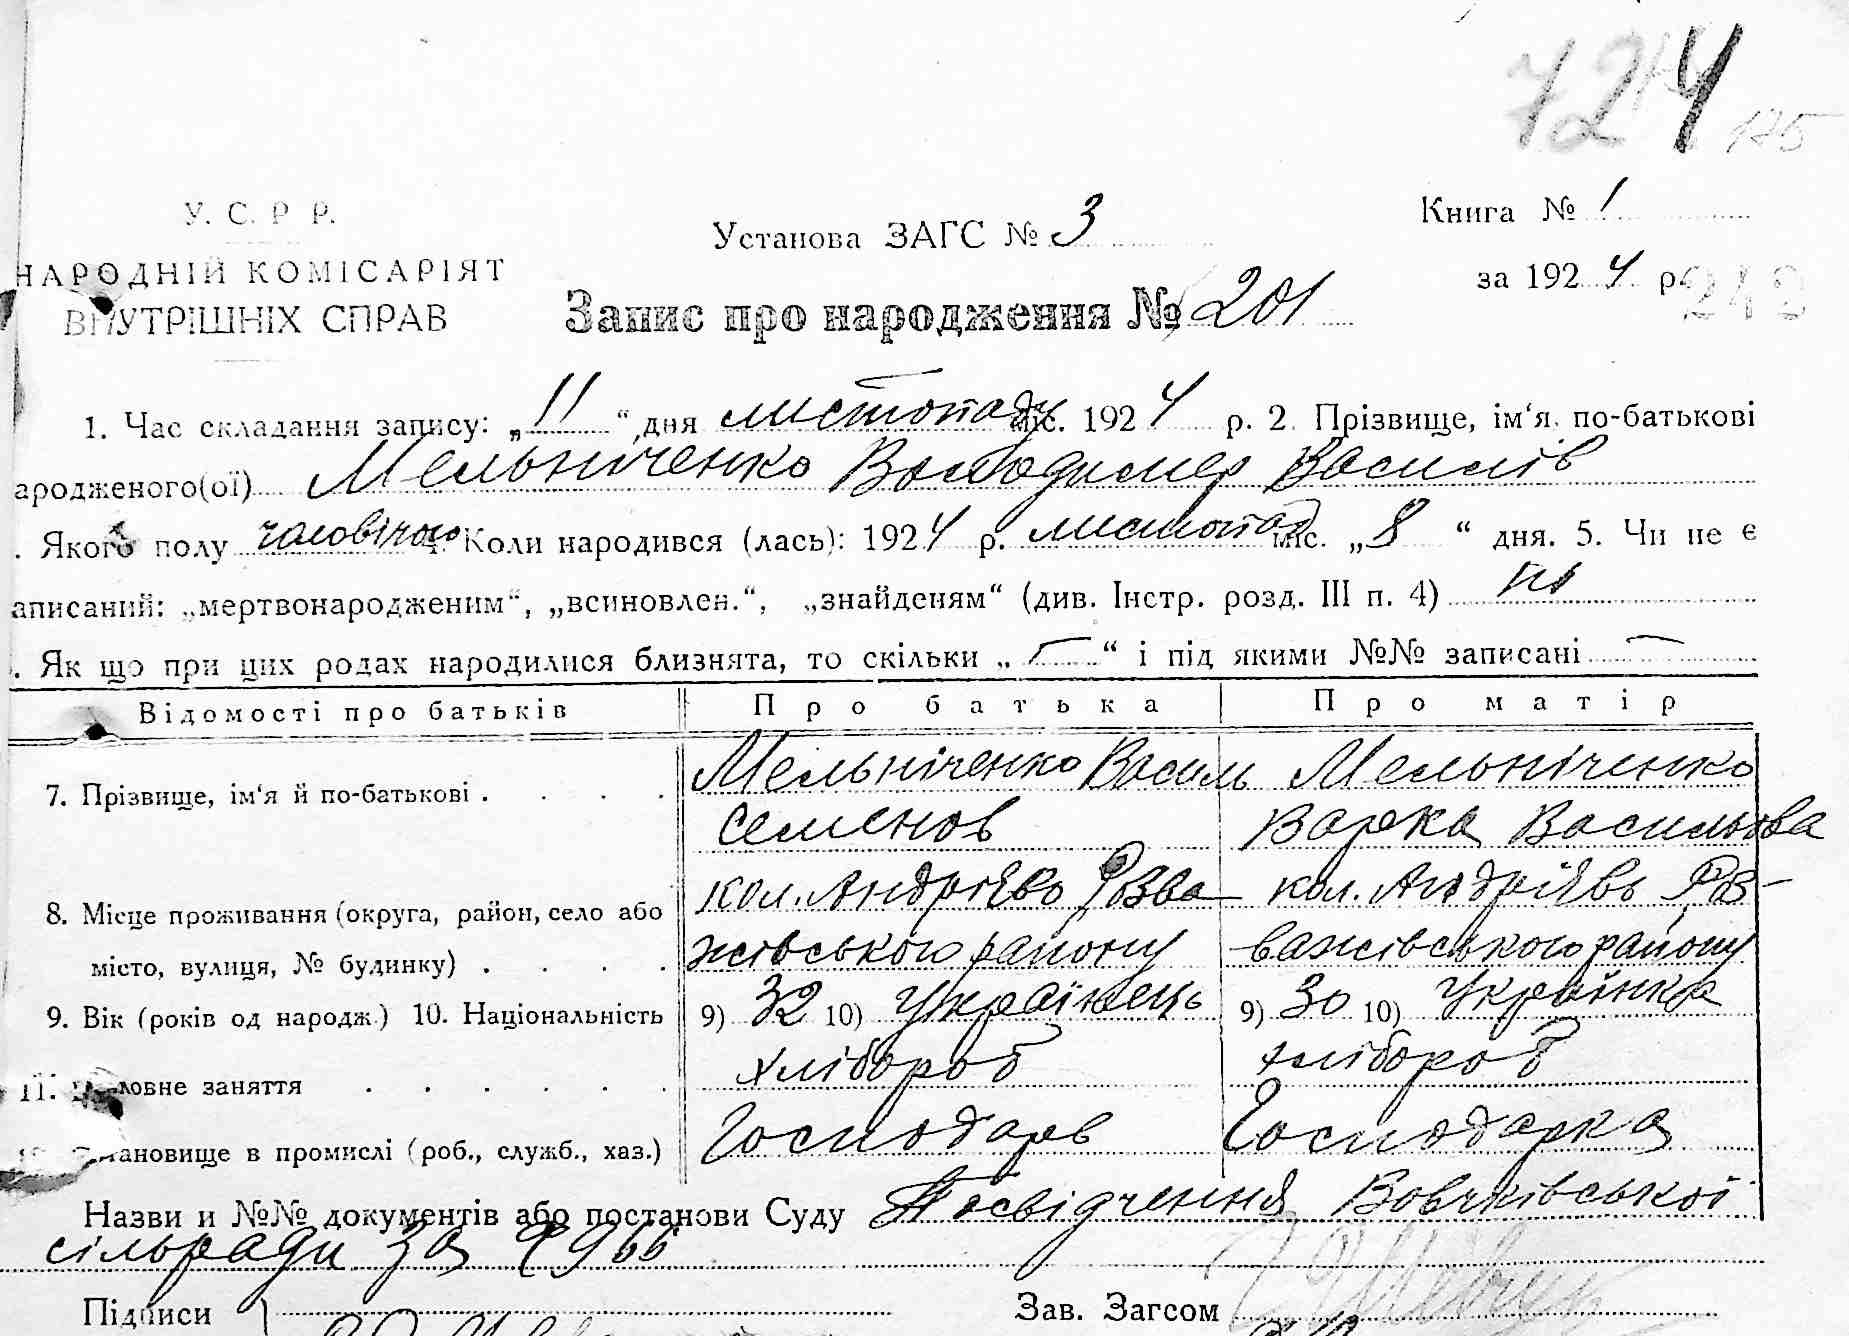 724 125
У. С. Р Р.
НАРОДНІЙ КОМІСАРІЯТ
ВНУТРІШНІХ СПРАВ
Установа ЗАГС № 3
Книга № 1
за 1924 р. 242
Запис про народження № 201
1. Час складання запису: „11“ дня листопаду міс. 1924 р. 2. Прізвище, ім‘я, по-батькові
ародженого(ої) Мельніченко Володимер Василів
. Якого полу чоловічого 4. Коли народився (лась): 1924 р. листопад міс. „8“ дня. 5. Чи не є
аписаний: „мертвонародженим“, „всиновлен.“, „знайденям“ (див. Інстр. розд. III п. 4) ні
. Як що при цих родах народилися близнята, то скільки „—“ і під якими №№ записані —
Відомості про батьків Про батька Про матір
7. Прізвище, ім‘я й по-батькові . . . . Мельніченко Василь Семенов Мельніченко Варка Васильова
8. Місце проживання (округа, район, село або місто, вулиця, № будинку) . . . . кол. Андріївь Розважівського району кол. Андріївь Розважівського району
9. Вік (років од народж.) 10. Національність 9) 32 10) Українець 9) 30 10) Українка
11. Головне заняття . . . . . . хлібороб хлібороб
12. Становище в промислі (роб., служб., хаз.) Господарь Господарка
Назви и №№ документів або постанови Суду Посвідчення Вовчківської
сільради за № 966
Підписи
Зав. Загсом